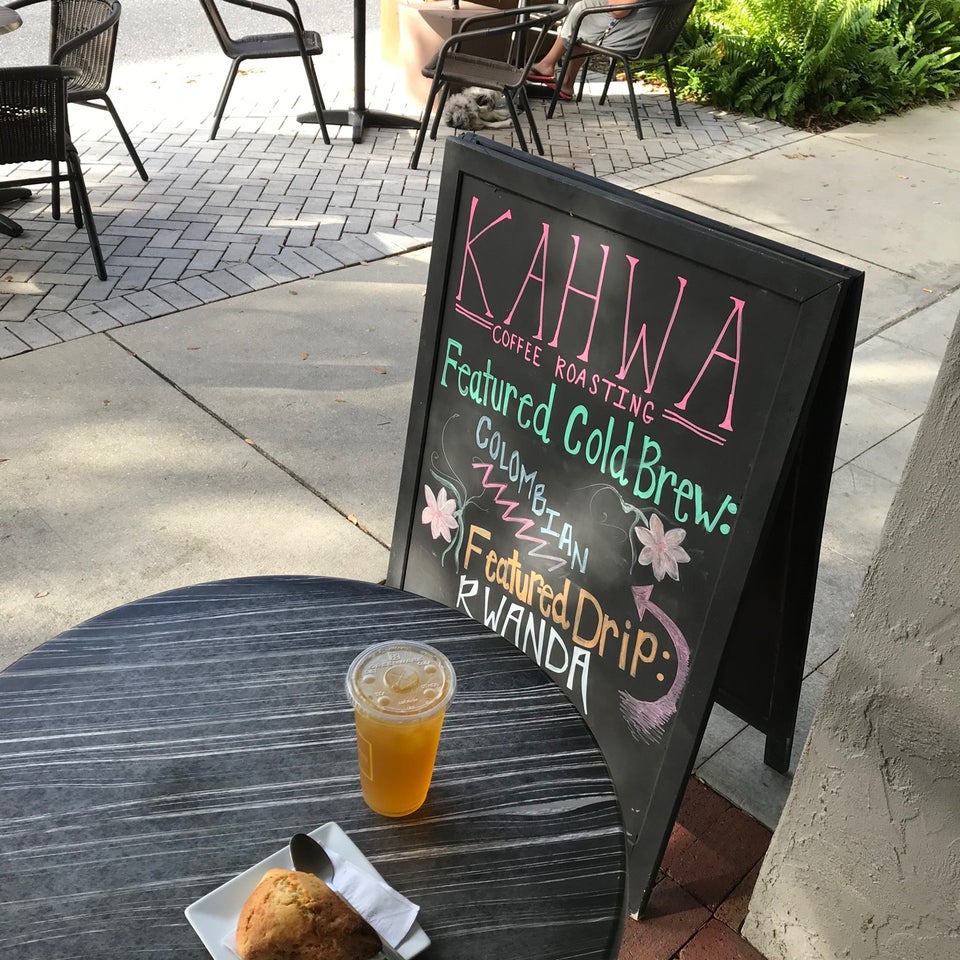 KAHWA
COFFEE ROASTING
Featured Cold Brew:
COLOMBIAN
Featured Drip:
RWANDA